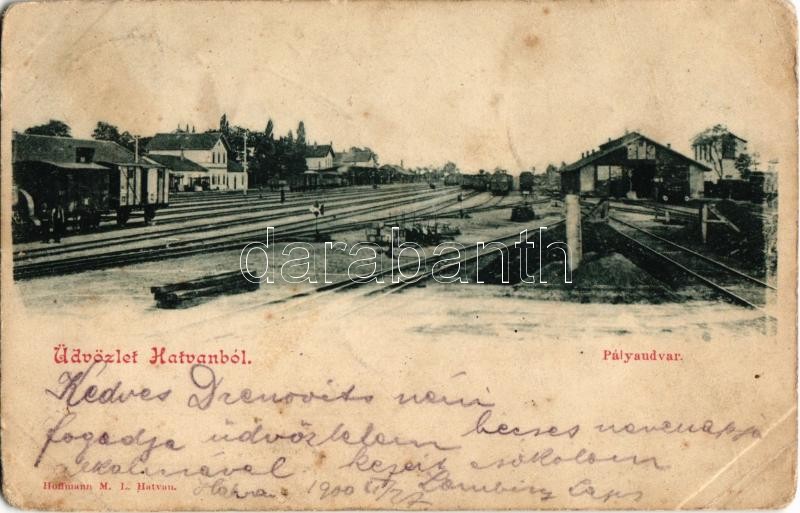 darabanth
Üdvözlet Hatvanból.
Pályaudvar.
Kedves Drenovits néni
fogadja üdvözletem becses nevenapja
alkalmával kezeit csókolom
Hoffmann M. L. Hatvan.
1900